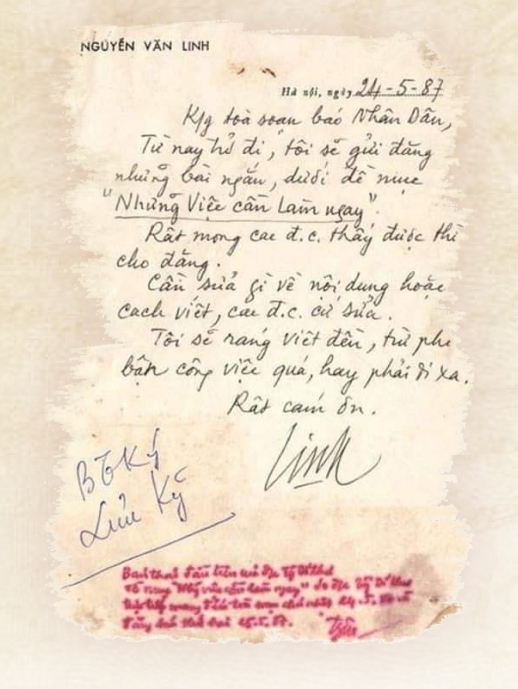 NGUYỄN VĂN LINH
Hà nội, ngày 24-5-87
K/g toà soạn báo Nhân Dân,
Từ nay trở đi, tôi sẽ gửi đăng
những bài ngắn, dưới đề mục
"Những Việc cần Làm ngay".
Rất mong các đ.c. thấy được thì
cho đăng.
Cần sửa gì về nội dung hoặc
cách viết, các đ.c. cứ sửa.
Tôi sẽ ráng viết đều, trừ phi
bận công việc quá, hay phải đi xa.
Rất cám ơn.
Linh
BTKý
Lưu Ký